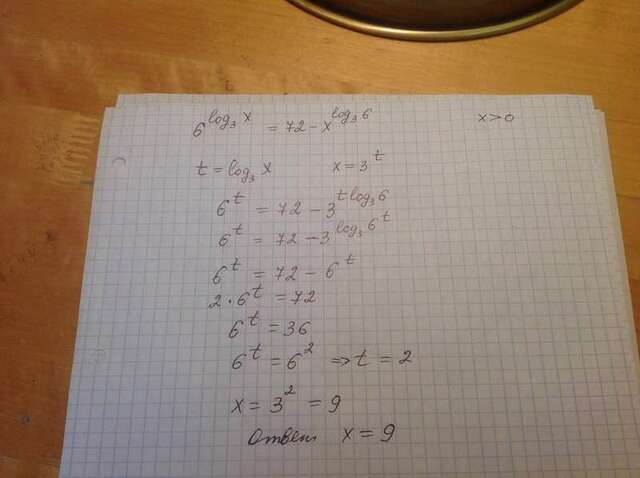 6^{log_3 x} = 72 - x^{log_3 6} x > 0
t = log_3 x x = 3^t
6^t = 72 - 3^{t log_3 6}
6^t = 72 - 3^{log_3 6^t}
6^t = 72 - 6^t
2 · 6^t = 72
6^t = 36
6^t = 6^2 ⇒ t = 2
x = 3^2 = 9
Ответ x = 9